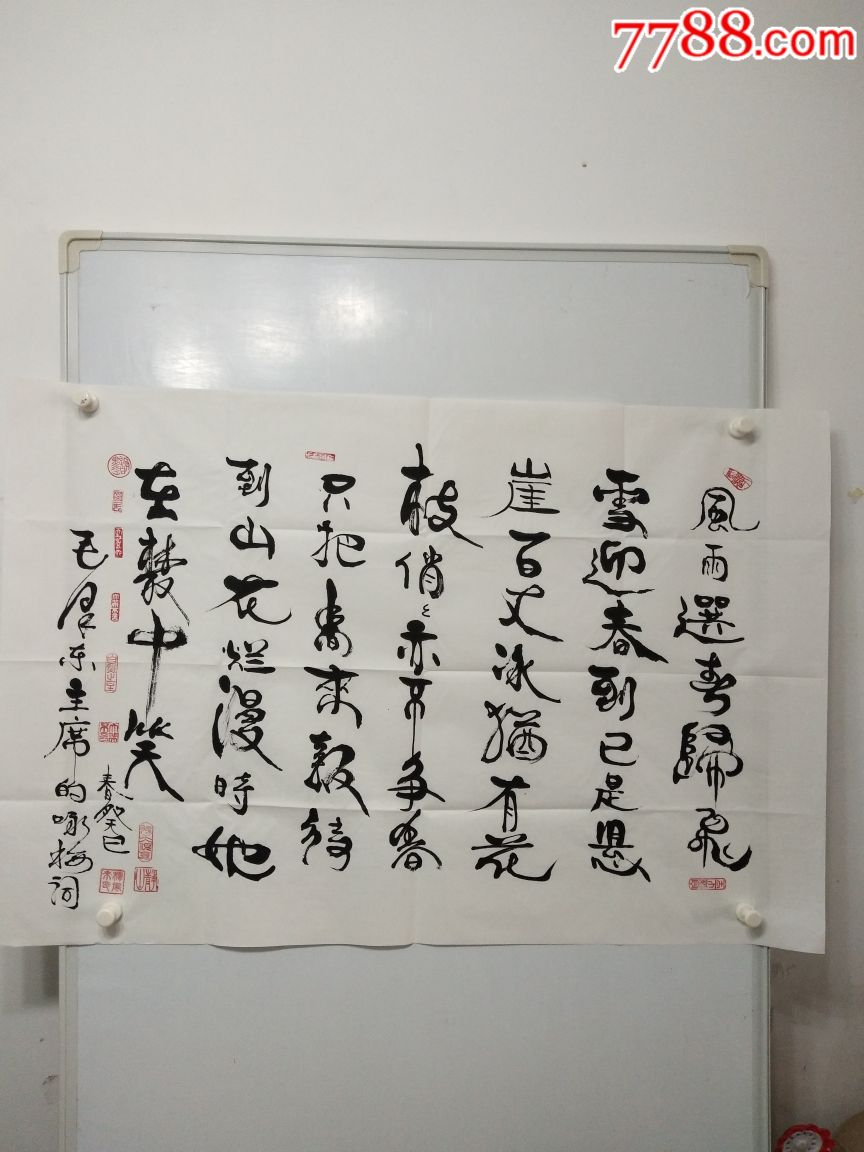 7788.com
風雨選春歸飛
雪迎春到已是懸
崖百丈冰猶有花
枝俏〻亦不争春
只把春來報待
到山花烂漫時她
在叢中笑
春癸巳
毛泽东主席的咏梅词